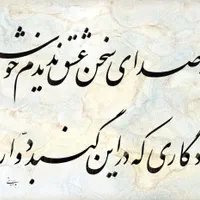 صدای سخن عشق ندیدم خوش
دگاری که در این گنبد دوار